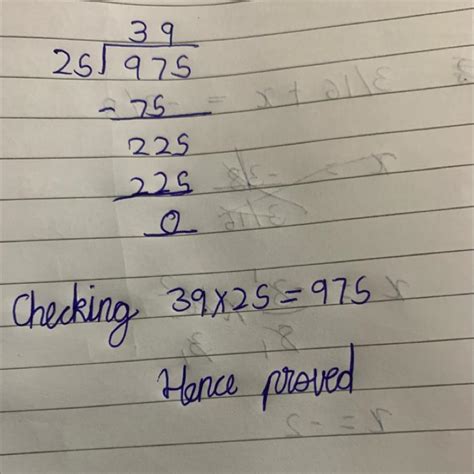 39
25)975
-75
225
225
0
Checking 39×25=975
Hence proved